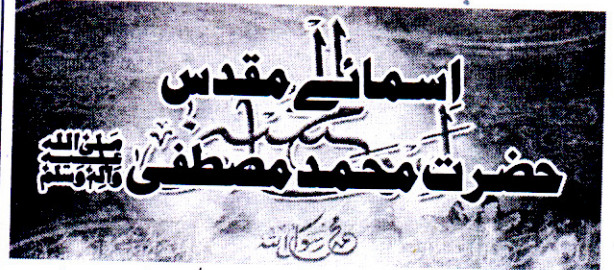 اِسمائے مقدس
حضرت محمد مصطفیٰ صلی اللہ علیہ وآلہ وسلم
محمد رسول اللہ